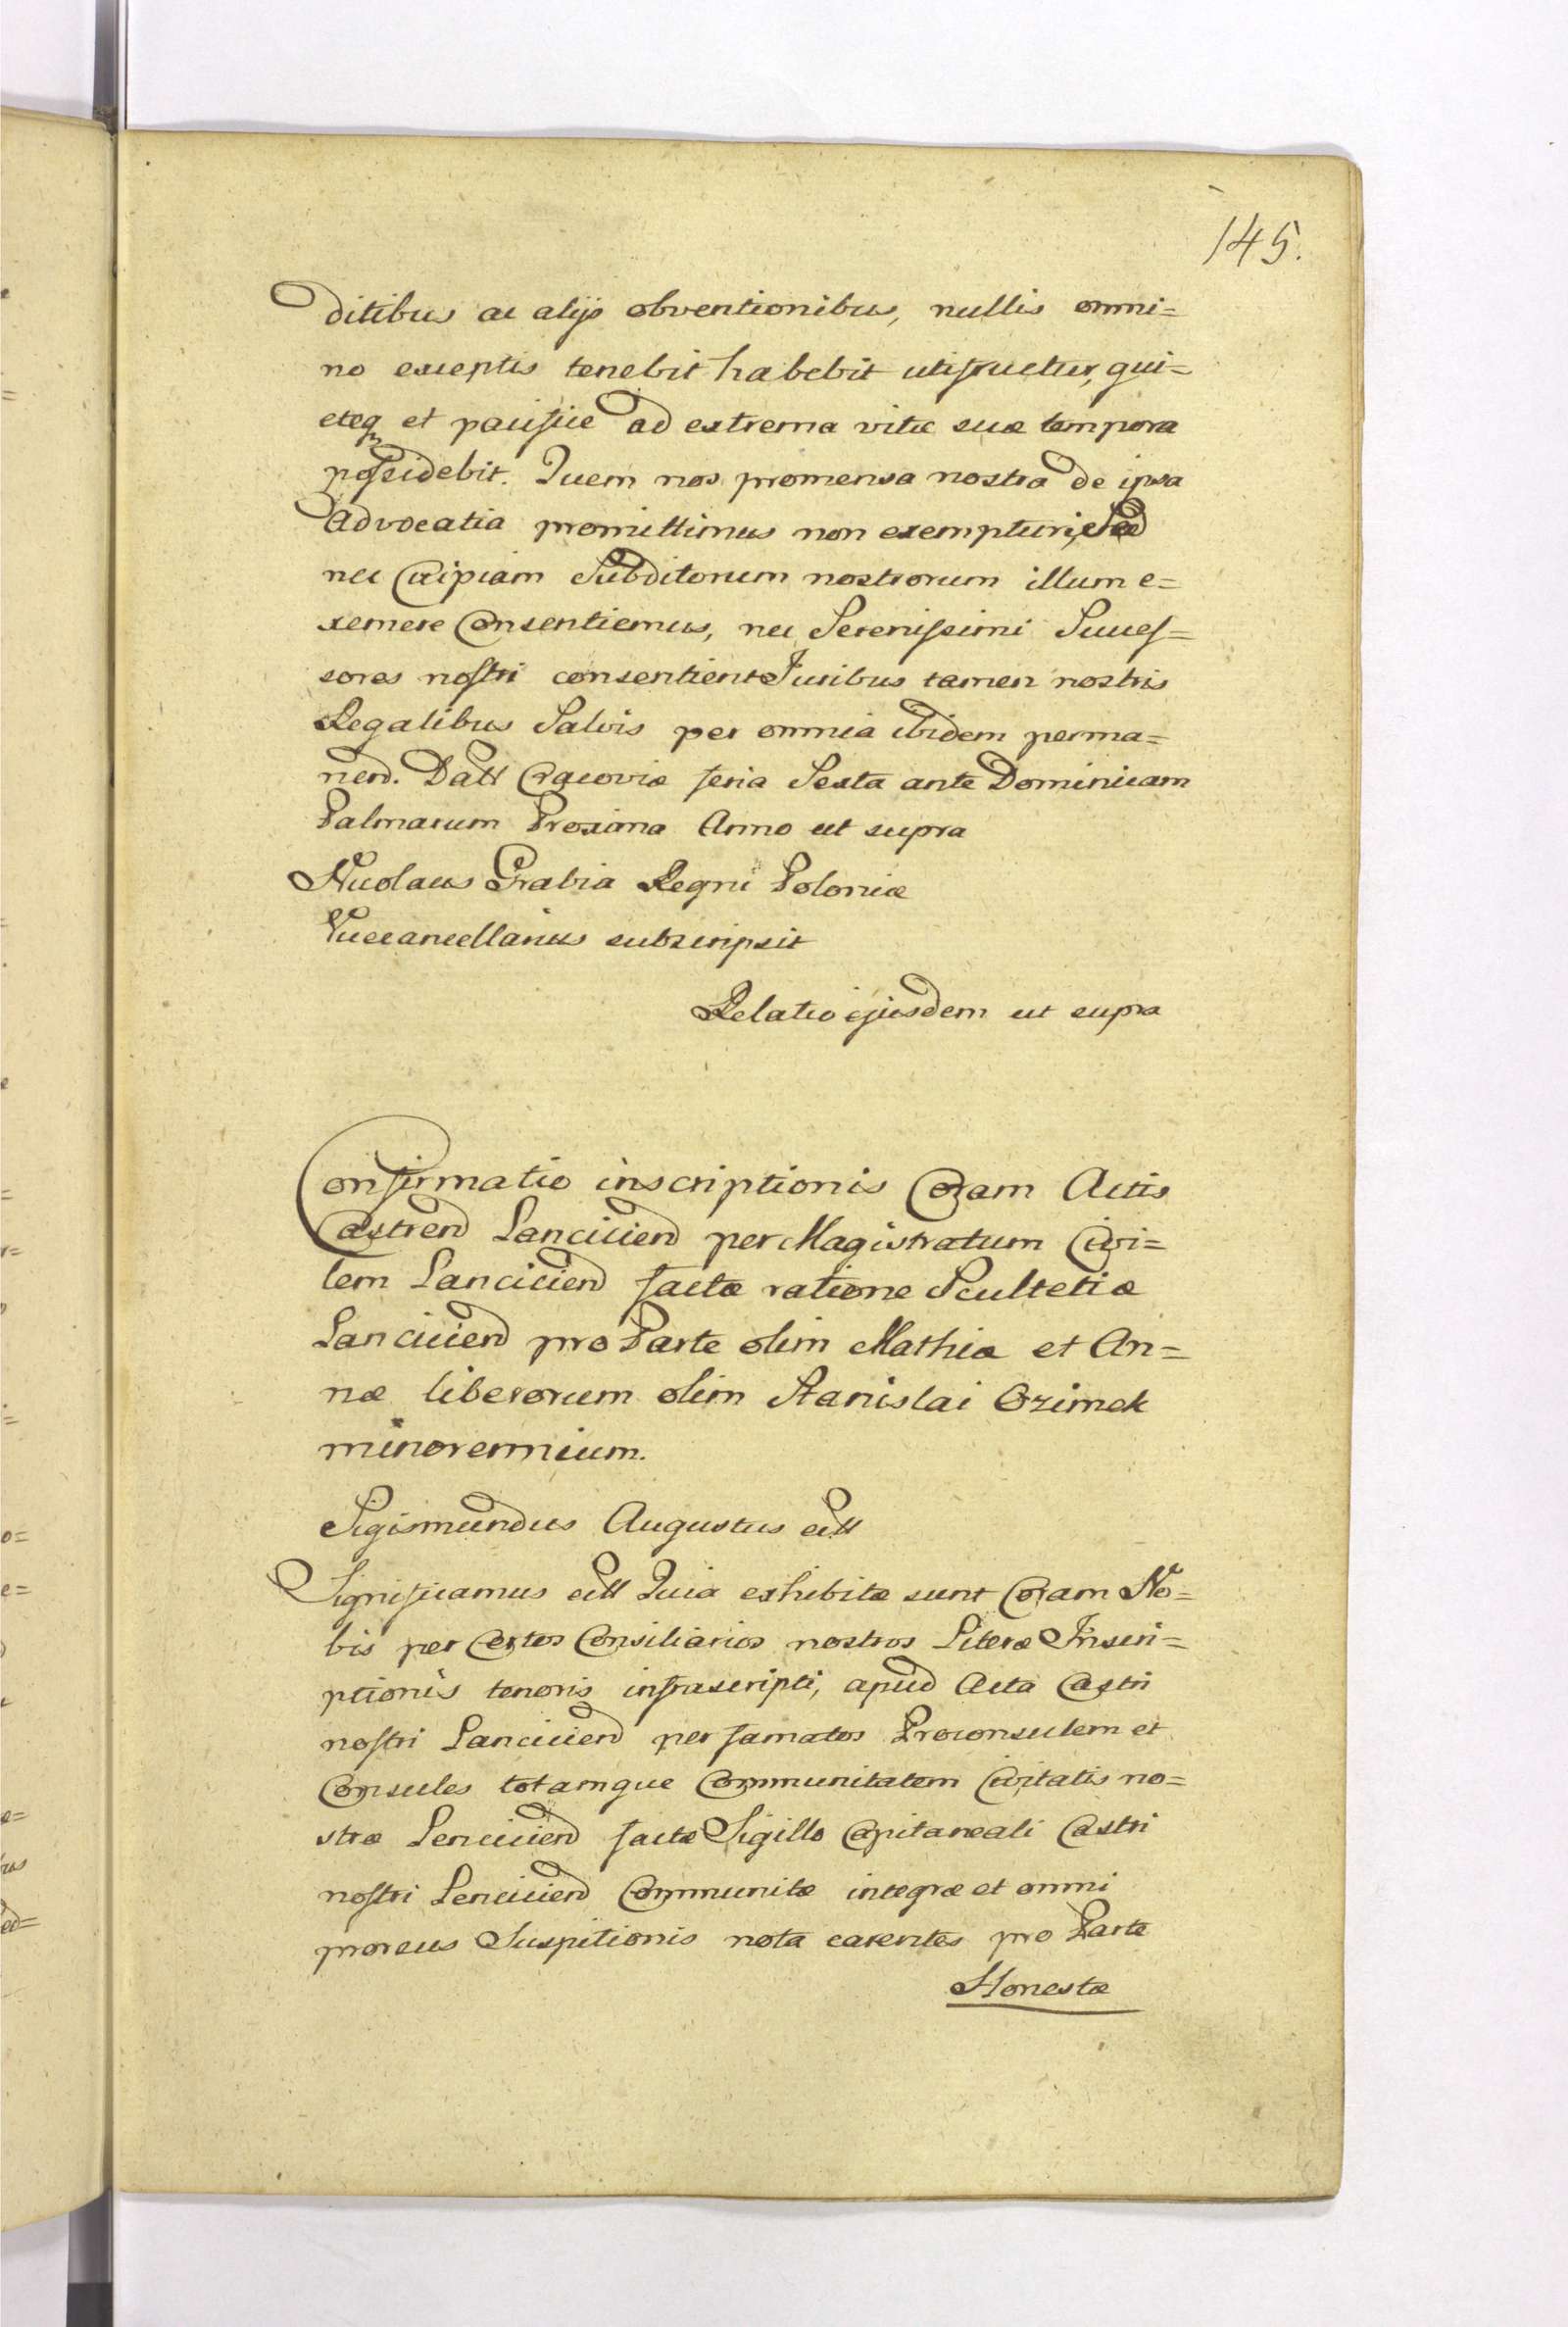 145.
ditibus ac alijs obventionibus, nullis omni=
no exceptis tenebit habebit utifruetur, qui=
eteq et pacifice ad extrema vitæ suæ tempora
possidebit. Quem nos promensa nostra de ipsa
Advocatia promittimus non exempturi, Sed
nec Cuipiam Subditorum nostrorum illum e=
ximere Consentiemus, nec Serenissimi Succes=
sores nostri consentient Juribus tamen nostris
Regalibus Salvis per omnia ibidem perma=
nend. Datt Cracoviæ feria Sexta ante Dominicam
Palmarum Proxima Anno ut supra
Nicolaus Grabia Regni Poloniæ
Vicecancellarius subscripsit
Relatio ejusdem ut supra
Confirmatio inscriptionis Coram Actis
Castrend Lanciciend per Magistratum Civi=
lem Lanciciend factæ ratione Scultetiæ
Lanciciend pro Parte olim Mathiæ et An=
næ liberorum olim Stanislai Ozimek
minorennium.
Sigismundus Augustus ett
Significamus ett Quia exhibitæ sunt Coram No=
bis per Certos Consiliarios nostros Literæ Inscri=
ptionis tenoris infrascripti, apud Acta Castri
nostri Lanciciend per famatos Proconsulem et
Consules totamque Communitatem Civitatis no=
stræ Lenciciend factæ Sigillo Capitaneali Castri
nostri Lenciciend Communitæ integræ et omni
prorsus Suspitionis nota carentes pro Parte
Honestæ